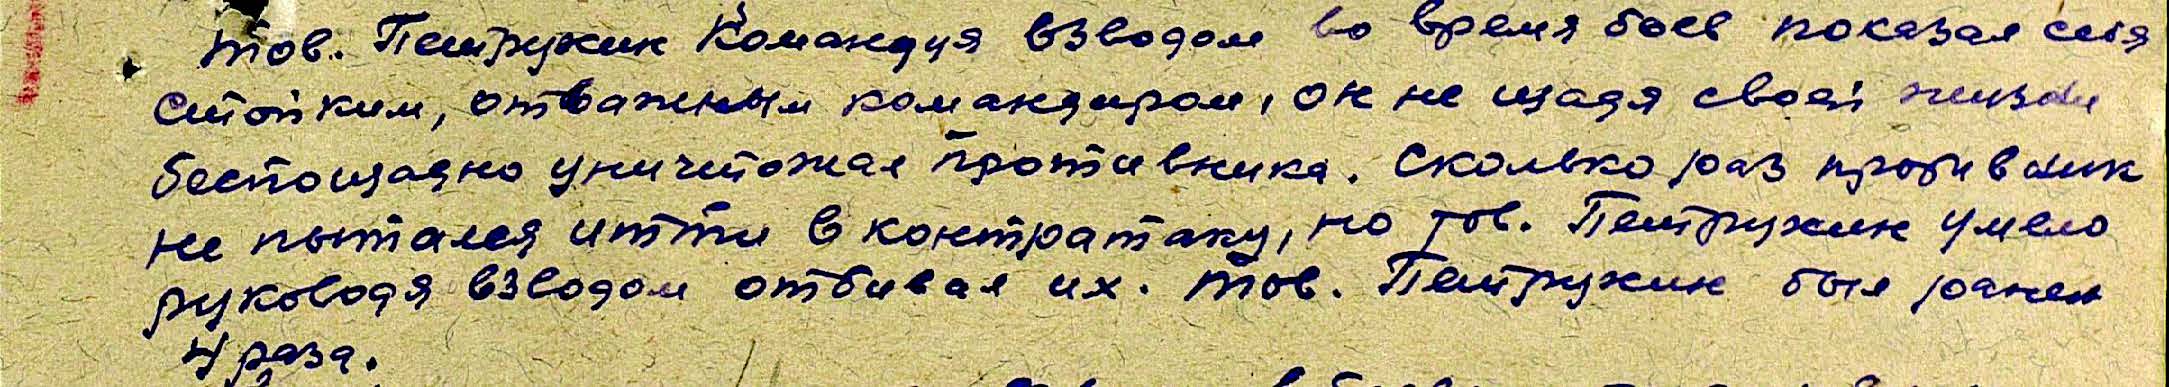 тов. Петружик командуя взводом во время боев показал себя
стойким, отважным командиром, он не щадя своей жизни
беспощадно уничтожал противника. Сколько раз противник
не пытался итти в контратаку, но тов. Петружик умело
руководя взводом отбивал их. Тов. Петружик был ранен
4 раза.